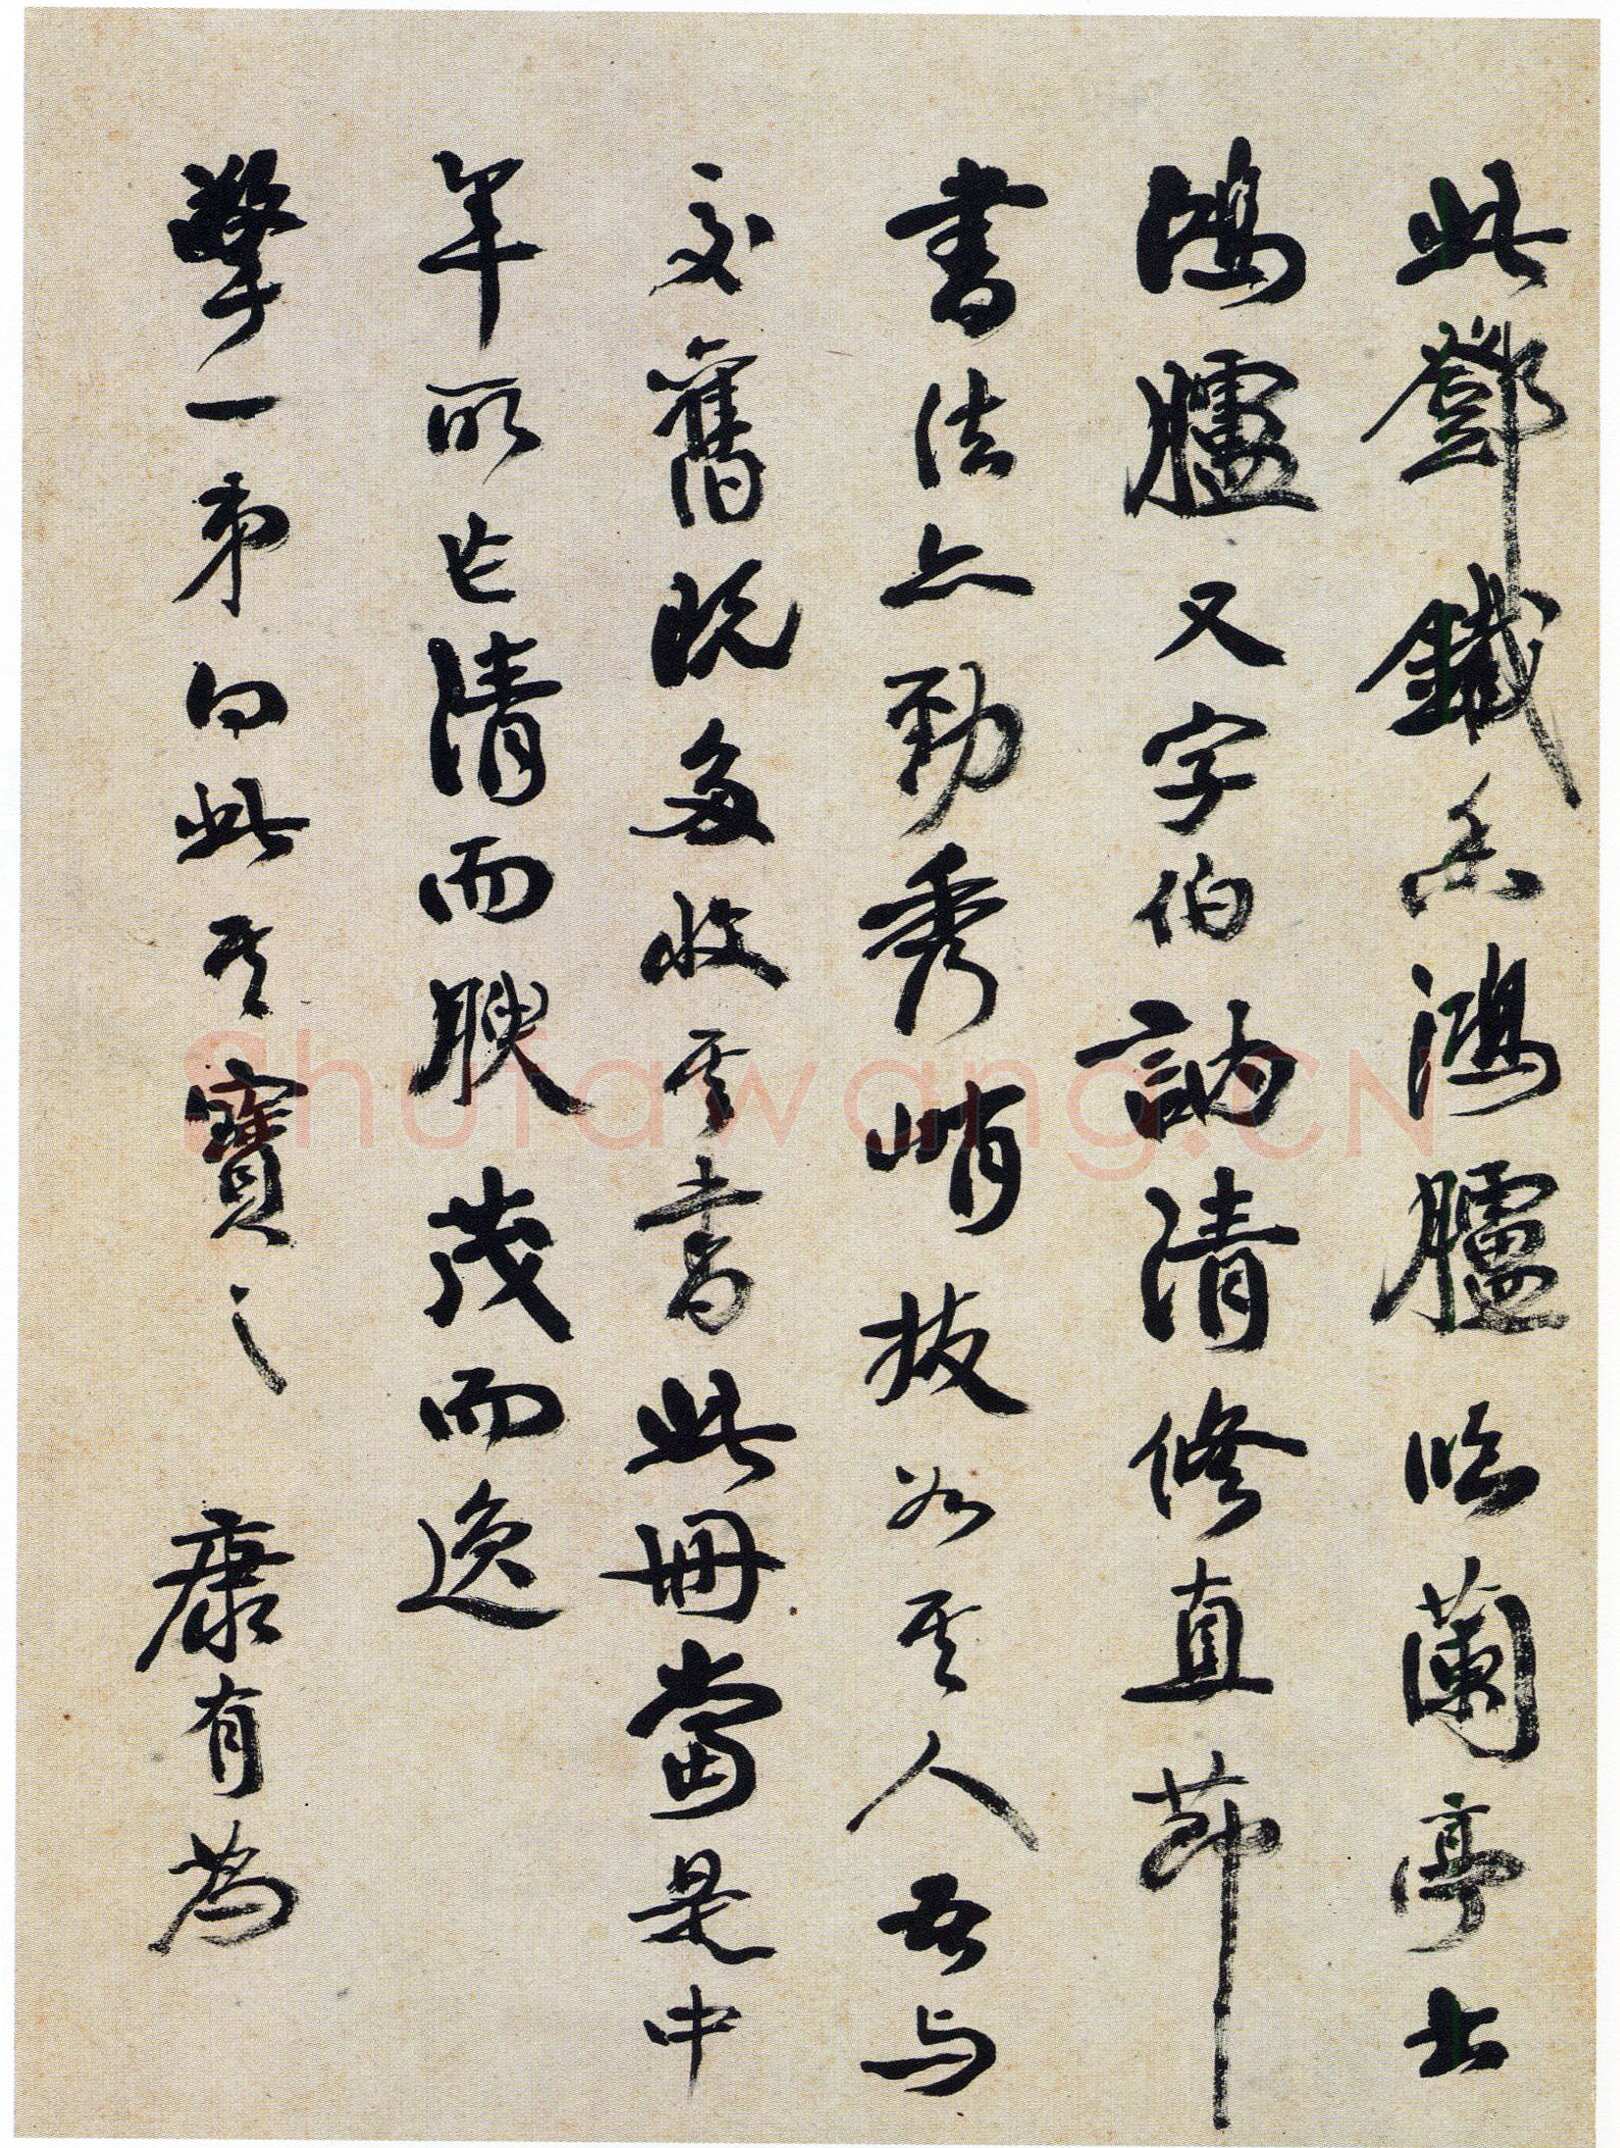 此鄧鐵香鴻臚臨蘭亭也
鴻臚又字伯訥清修直節
書法亦勁秀峭拔如其人吾与
交舊既多收其書此冊當是中
年所作清而腴茂而逸
擎一弟此其寶之 康有為
Shufawang.CN